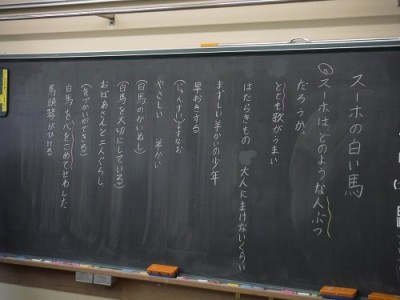 スーホの白い馬
スーホはどのような人ぶつ
だろうか。
とても歌がうまい
はたらきもの 大人にまけないくらい
まずしい羊かいの少年
早おきする
すなお
やさしい 羊かい
(白馬のかいぬし)
(白馬を大切にしている)
おばあさんと二人ぐらし
(きづかいができる)
白馬を心をこめてせわした
馬頭琴がひける